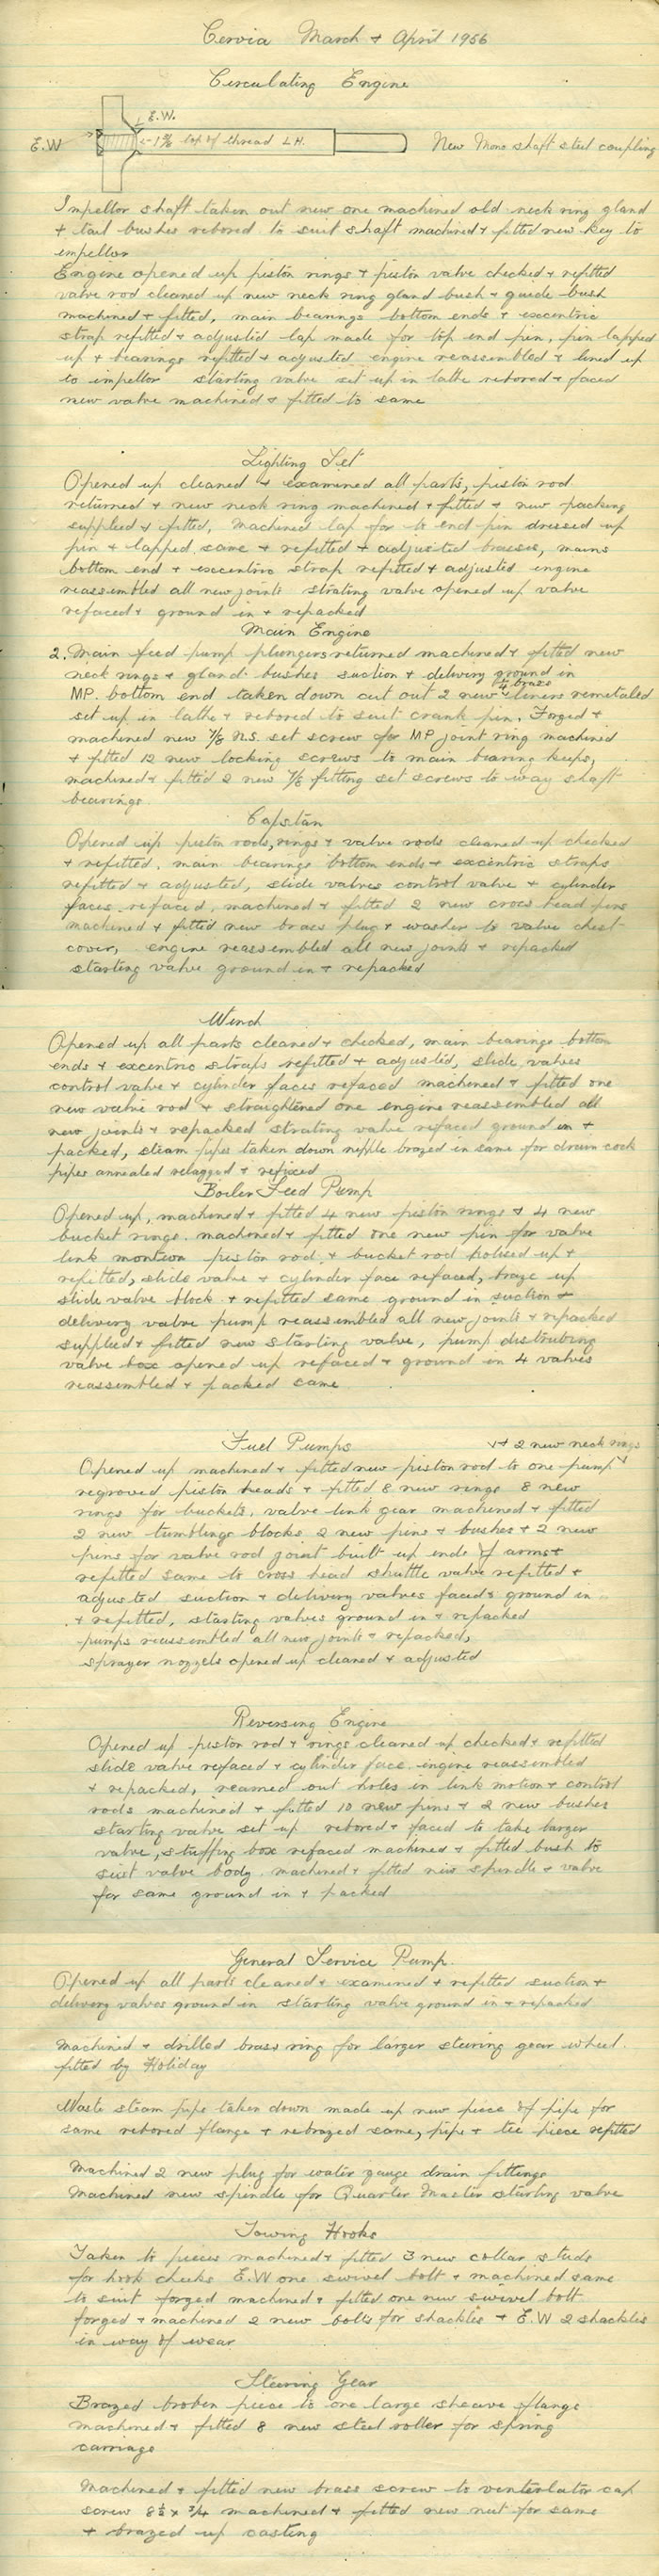 Cervia March + April 1956
Circulating Engine
E.W.
E.W
top of thread L.H.
New Mono shaft steel coupling
Impellor shaft taken out new one machined old neck ring gland
+ tail bushes rebored to suit shaft machined + fitted new key to
impellor
Engine opened up piston rings + piston valve checked + refitted
valve rod cleaned up new neck ring gland bush + guide bush
machined + fitted, main bearings bottom ends + excentric
strap refitted + adjusted lap made for top end pin, pin lapped
up + bearings refitted + adjusted engine reassembled + lined up
to impellor starting valve set up in lathe rebored + faced
new valve machined + fitted to same
Lighting Set
Opened up cleaned + examined all parts, piston rod
returned + new neck ring machined + fitted + new packing
supplied + fitted, machined lap for to end pin dressed up
pin + lapped same + refitted + adjusted brasses, mains
bottom end + excentric strap refitted + adjusted engine
reassembled all new joints strating valve opened up valve
refaced + ground in + repacked
Main Engine
2. Main feed pump plungers returned machined + fitted new
neck rings + gland bushes suction + delivery ground in
MP. bottom end taken down cut out 2 new brass liners remetaled
set up in lathe + rebored to suit crank pin. Forged +
machined new 7/8 N.S. set screw for MP joint ring machined
+ fitted 12 new locking screws to main bearing keeps,
machined + fitted 2 new 7/8 fitting set screws to way shaft
bearings.
Capstan
Opened up piston rods, rings + valve rods cleaned up checked
+ refitted, main bearings bottom ends + excentric straps
refitted + adjusted, slide valves control valve + cylinder
faces refaced, machined + fitted 2 new cross head pins
machined + fitted new brass plug + washer to valve chest
cover, engine reassembled all new joints + repacked
starting valve ground in + repacked
Winch
Opened up all parts cleaned + checked, main bearings bottom
ends + excentric straps refitted + adjusted, slide valves
control valve + cylinder faces refaced machined + fitted one
new valve rod + straightened one engine reassembled all
new joints + repacked strating valve refaced ground in +
packed, steam pipes taken down nipple brazed in same for drain cock
pipes annealed relagged + refixed
Boiler Feed Pump
Opened up, machined + fitted 4 new piston rings + 4 new
bucket rings. machined + fitted one new pin for valve
link montion piston rod + bucket rod polised up +
refitted, slide valve + cylinder face refaced, braze up
slide valve block + refitted same ground in suction +
delivery valve pump reassembled all new joints + repacked
supplied + fitted new starting valve, pump distrubing
valve box opened up refaced + ground in 4 valves
reassembled + packed same
Fuel Pumps
+ 2 new neck rings
Opened up machined + fitted new piston rod to one pump
regroved piston heads + fitted 8 new rings 8 new
rings for buckets, valve link gear machined + fitted
2 new tumblings blocks 2 new pins + bushes + 2 new
pins for valve rod joint built up ends of arms +
refitted same to cross head shuttle valve refitted +
adjusted suction + delivery valves faced + ground in
+ refitted, starting valves ground in + repacked
pumps reassembled all new joints + repacked,
sprayer nozzels opened up cleaned + adjusted
Reversing Engine
Opened up piston rod + rings cleaned up checked + refitted
slide valve refaced + cylinder face engine reassembled
+ repacked, reamed out holes in link motion + control
rods machined + fitted 10 new pins + 2 new bushes
starting valve set up rebored + faced to take larger
valve, stuffing box refaced machined + fitted bush to
suit valve body machined + fitted new spindle + valve
for same ground in + packed
General Service Pump.
Opened up all parts cleaned + examined + refitted suction +
delivery valves ground in starting valve ground in + repacked
Machined + drilled brass ring for larger steering gear wheel.
fitted by Holiday
Waste steam pipe taken down made up new piece of pipe for
same rebored flange + rebrazed same, pipe + tee piece refitted
Machined 2 new plug for water gauge drain fittings
Machined new spindle for Quarter Master starting valve
Towing Hooks
Taken to pieces machined + fitted 3 new collar studs
for hook cheeks E.W one swivel bolt + machined same
to suit forged machined + fitted one new swivel bolt
forged + machined 2 new bolts for shackles + E.W 2 shackles
in way of wear
Steering Gear
Brazed broken piece to one large sheave flange
machined + fitted 8 new steel roller for spring
carriage
Machined + fitted new brass screw to ventertator cap
screw 8½ x 3/4 machined + fitted new nut for same
+ brazed up casting